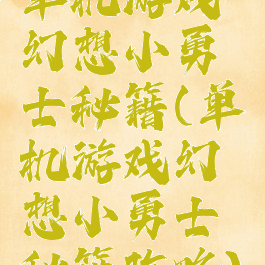 单机游戏
幻想小勇
士秘籍(单
机游戏幻
想小勇士
秘籍攻略)